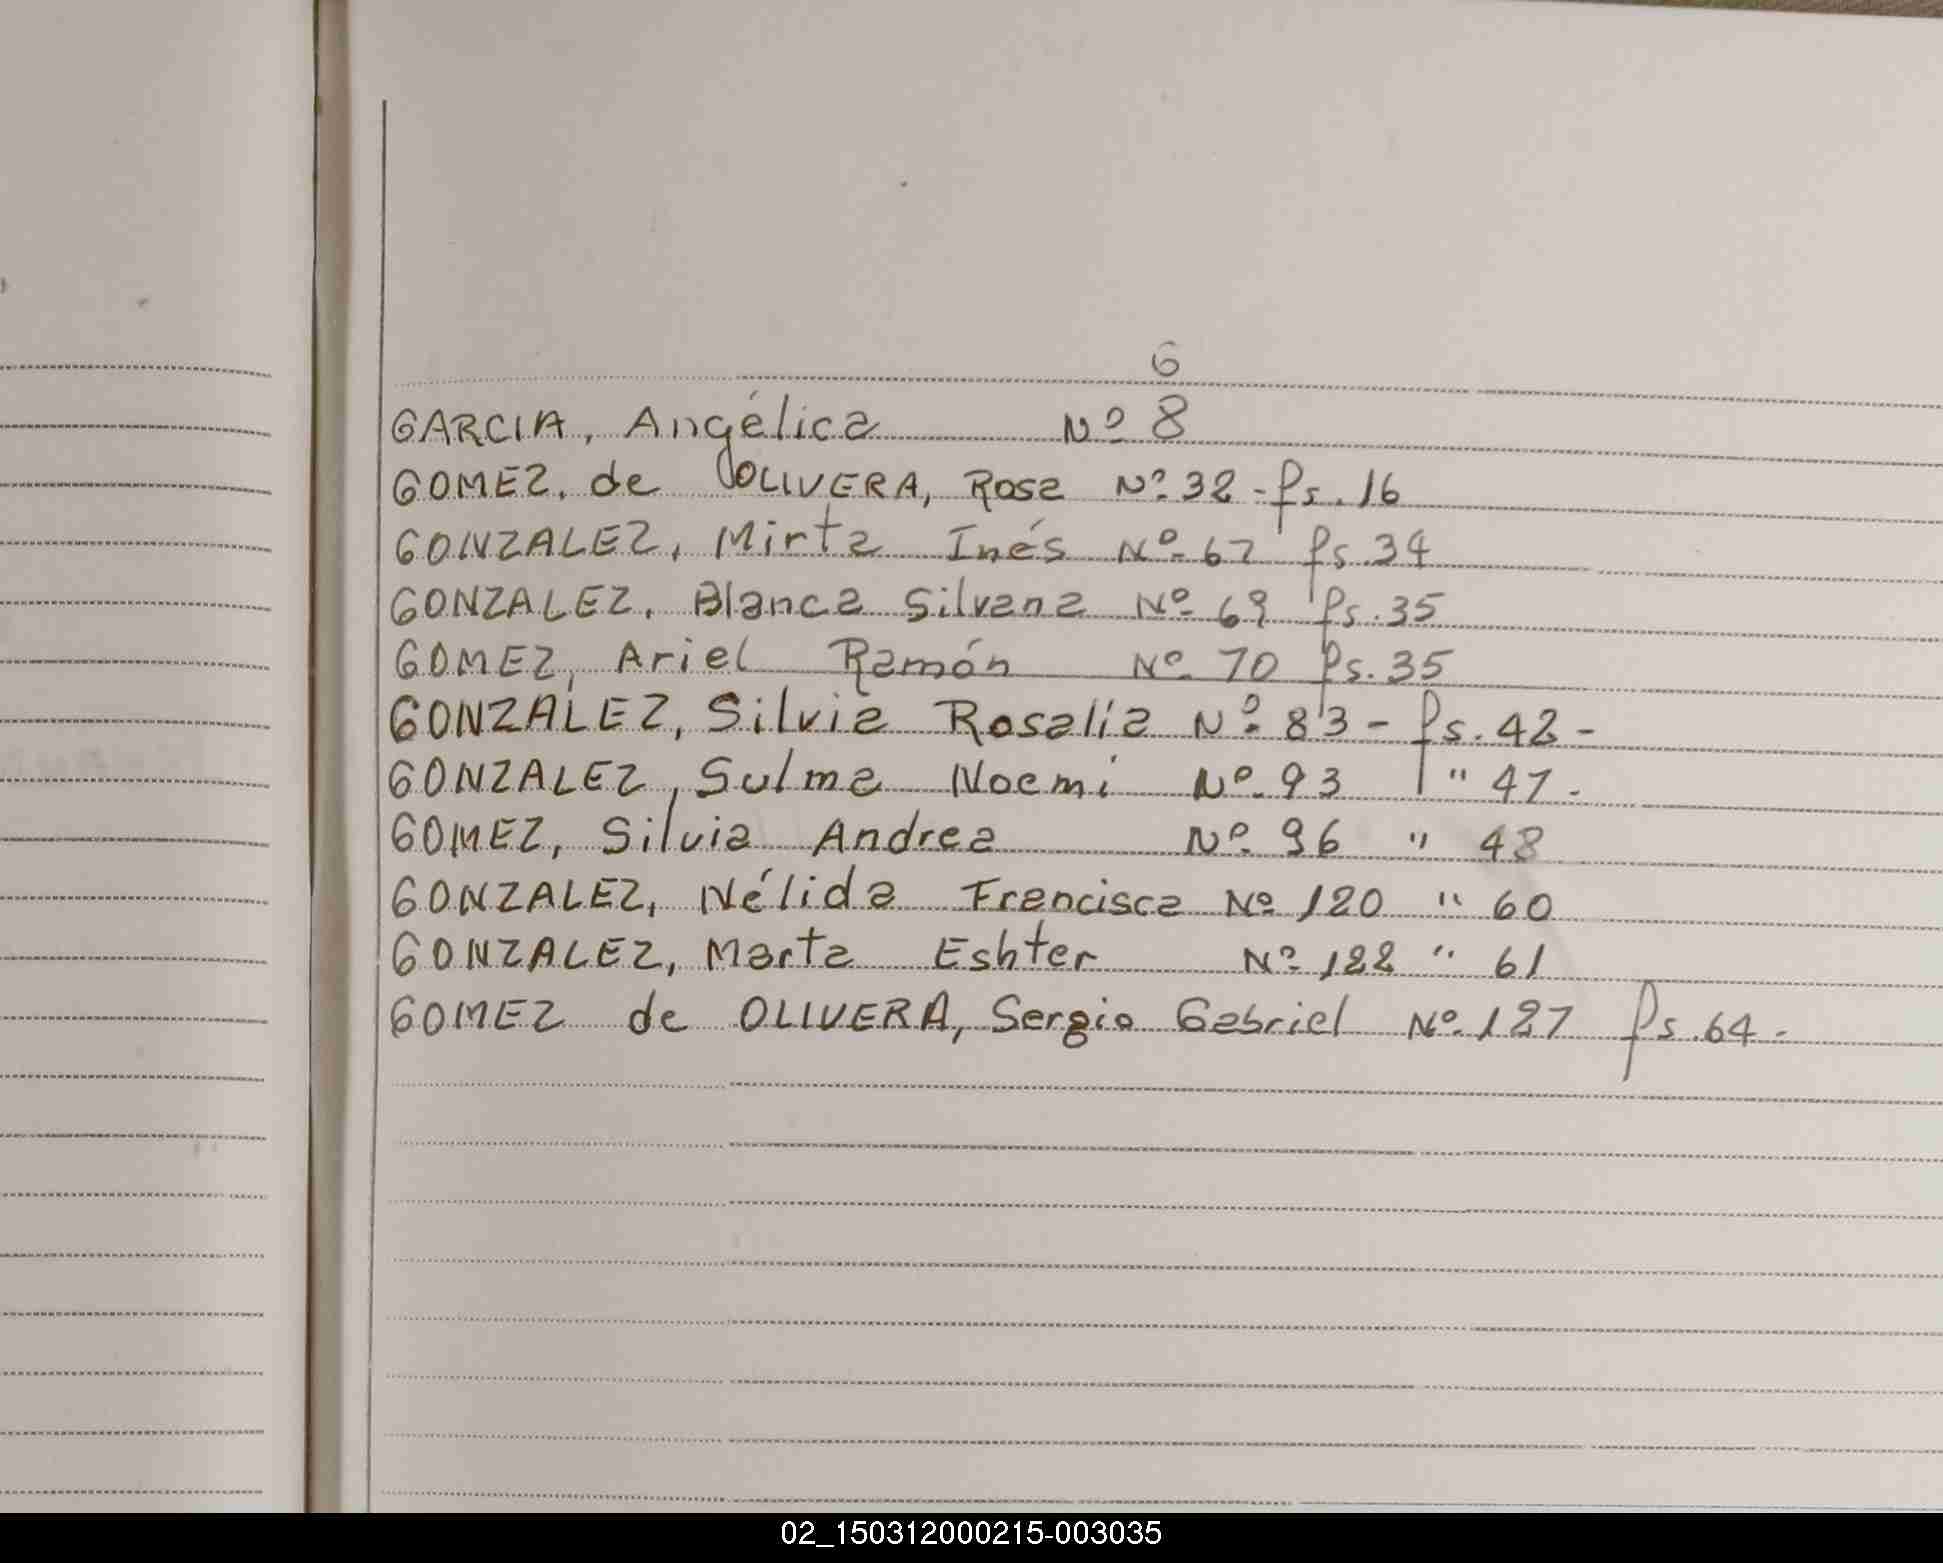 G
GARCIA, Angélica Nº 8
GOMEZ, de OLIVERA, Rosa Nº 32 - fs. 16
GONZALEZ, Mirta Inés Nº 67 fs. 34
GONZALEZ, Blanca Silvana Nº 69 fs. 35
GOMEZ, Ariel Ramón Nº 70 fs. 35
GONZALEZ, Silvia Rosalía Nº 83 - fs. 42 -
GONZALEZ, Sulma Noemí Nº 93 " 47 -
GOMEZ, Silvia Andrea Nº 96 " 48
GONZALEZ, Nélida Francisca Nº 120 " 60
GONZALEZ, Marta Eshter Nº 122 " 61
GOMEZ de OLIVERA, Sergio Gabriel Nº 127 fs. 64 -
02_150312000215-003035